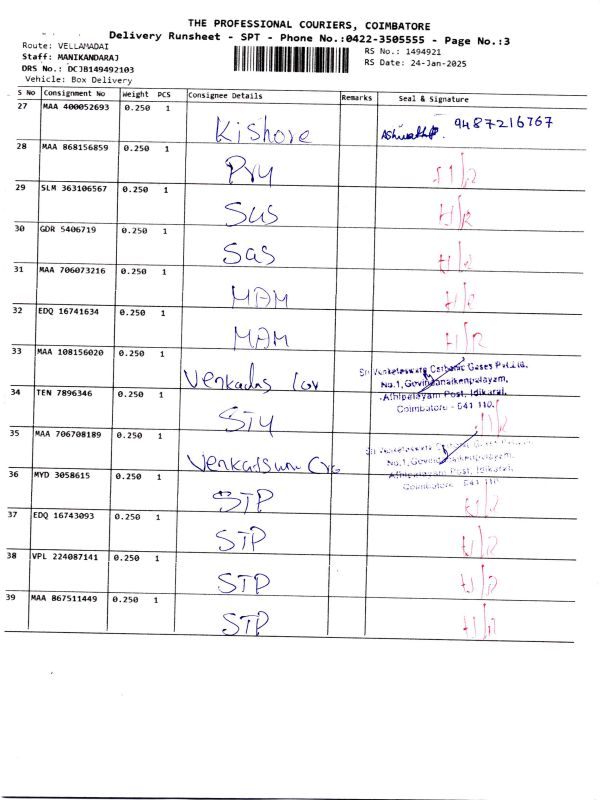 THE PROFESSIONAL COURIERS, COIMBATORE
Delivery Runsheet - SPT - Phone No.:0422-3505555 - Page No.:3
Route: VELLAMADAI
Staff: MANIKANDARAJ
DRS No.: DCJB149492103
Vehicle: Box Delivery
RS No.: 1494921
RS Date: 24-Jan-2025
S No Consignment No Weight PCS Consignee Details Remarks Seal & Signature
27 MAA 400052693 0.250 1 Kishore 9487216767
28 MAA 868156859 0.250 1
29 SLM 363106567 0.250 1 SUS H/R
30 GDR 5406719 0.250 1 Sas H/R
31 MAA 706073216 0.250 1 MAM H/R
32 EDQ 16741634 0.250 1 MAM H/R
33 MAA 108156020 0.250 1 Venkadas
Sri Venkateswara Carbonic Gases Pvt.Ltd.
No.1, Govindanaikenpalayam,
Athipalayam Post, Idikarai,
Coimbatore - 641 110.
34 TEN 7896346 0.250 1 STY
35 MAA 706708189 0.250 1
Sri Venkateswara Carbonic Gases
No.1, Govindanaikenpalayam,
Athipalayam Post, Idikarai,
Coimbatore - 641 110
36 MYD 3058615 0.250 1 STP H/R
37 EDQ 16743093 0.250 1 STP H/R
38 VPL 224087141 0.250 1 STP H/R
39 MAA 867511449 0.250 1 STP H/R